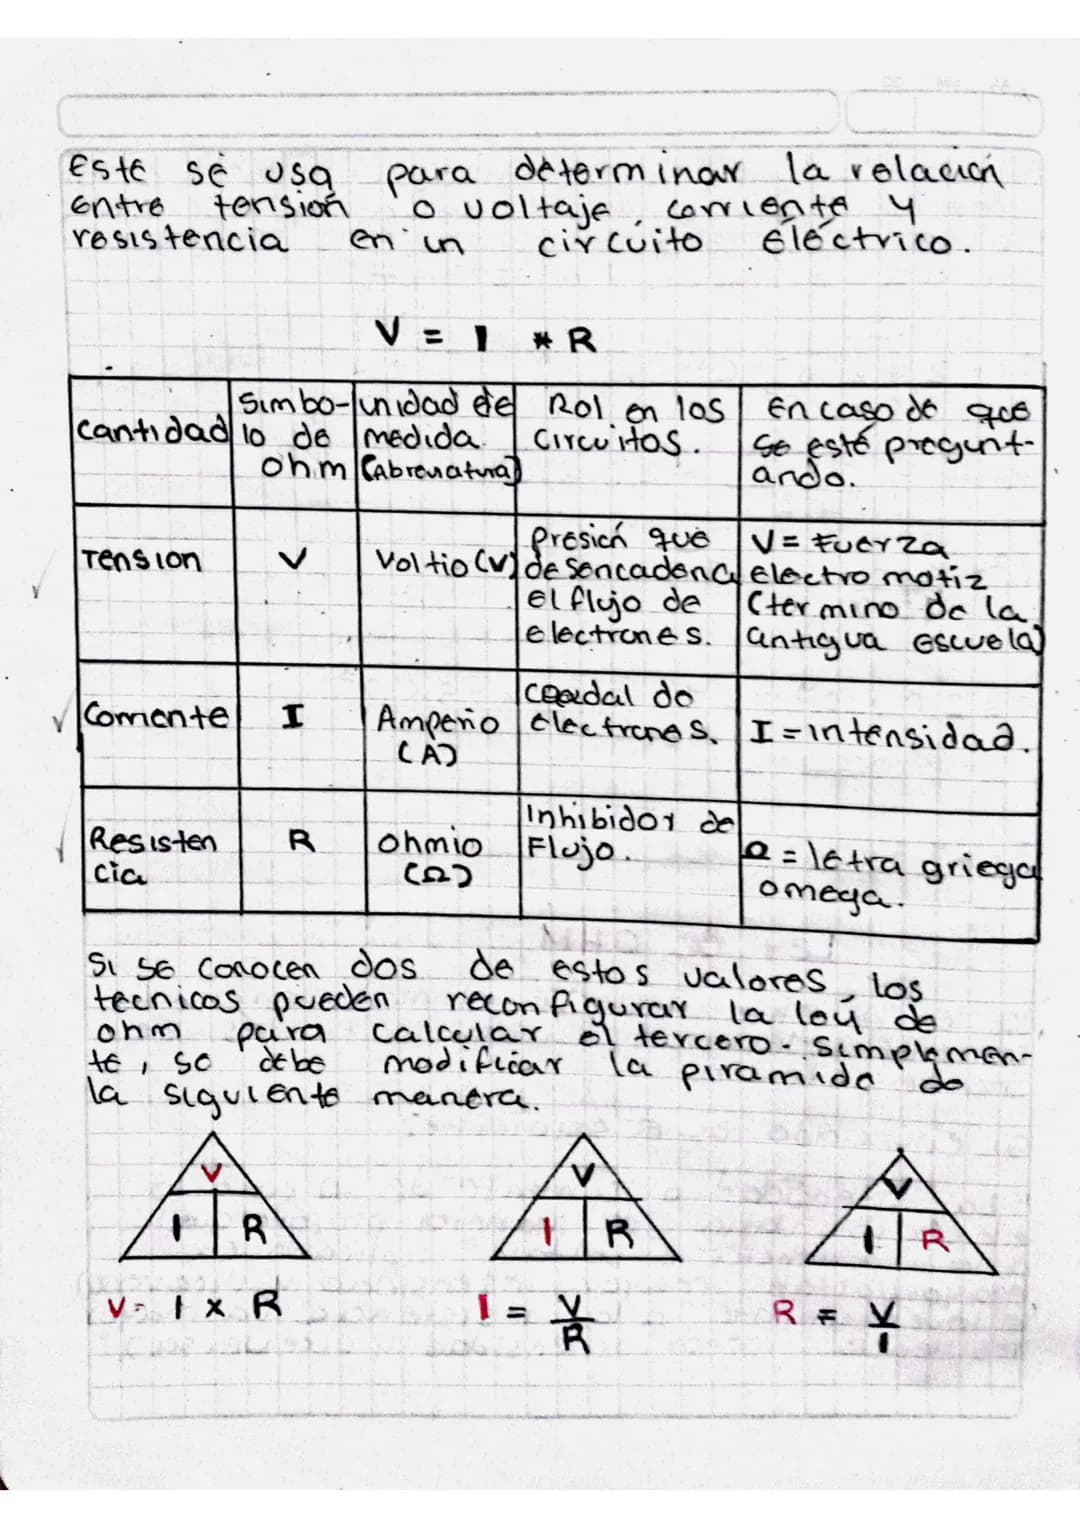 Este se usa para determinar la relación
entre tensión o voltaje, corriente y
resistencia en un circuito eléctrico.
V = I * R
Cantidad
Simbo-
lo de
ohm
unidad de
medida
(Abreviatura)
Rol en los
circuitos.
En caso de que
se esté pregunt-
ando.
Tension
V
Voltio (V)
Presión que
desencadena
el flujo de
electrones.
V = Fuerza
electro motiz
(termino de la
antigua escuela)
Corriente
I
Amperio
(A)
Caudal de
electrones.
I = intensidad.
Resisten
cia
R
ohmio
(Ω)
Inhibidor de
Flujo.
Ω = letra griega
omega.
Si se conocen dos de estos valores, los
tecnicos pueden reconfigurar la ley de
ohm para calcular el tercero. Simplemen-
te, se debe modificar la piramide de
la siguiente manera.
V
I R
V
I R
V
I R
V = I x R
I = V
R
R = V
I